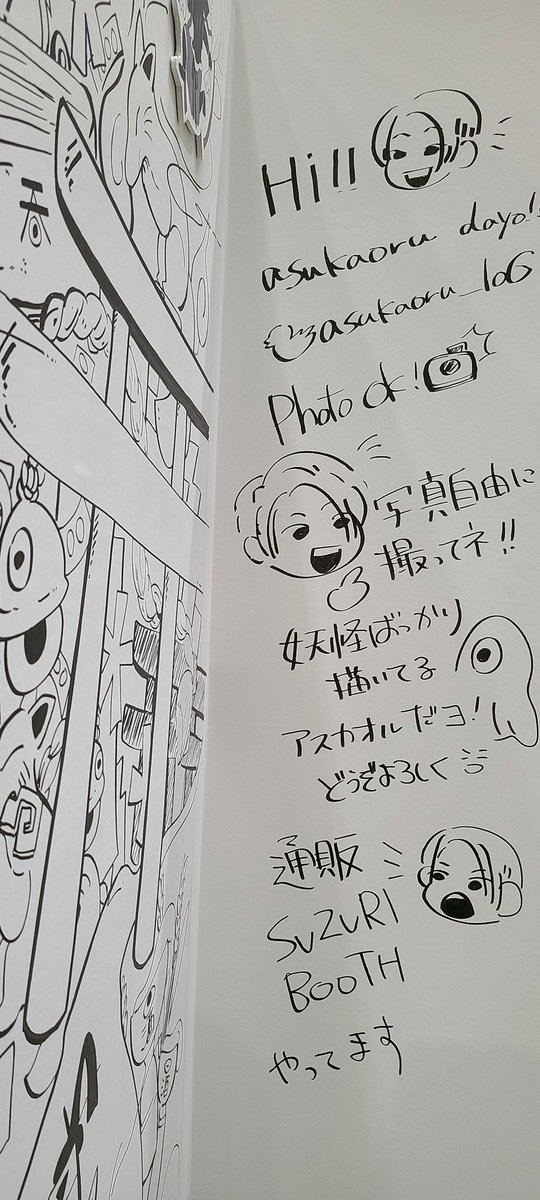 Hi!!
asukaoru dayo!!
asukaoru_106
Photo ok!
写真自由に
撮ってネ!!
妖怪ばっかり
描いてる
アスカオルだヨ!
どうぞよろしく
通販
SUZURI
BOOTH
やってます